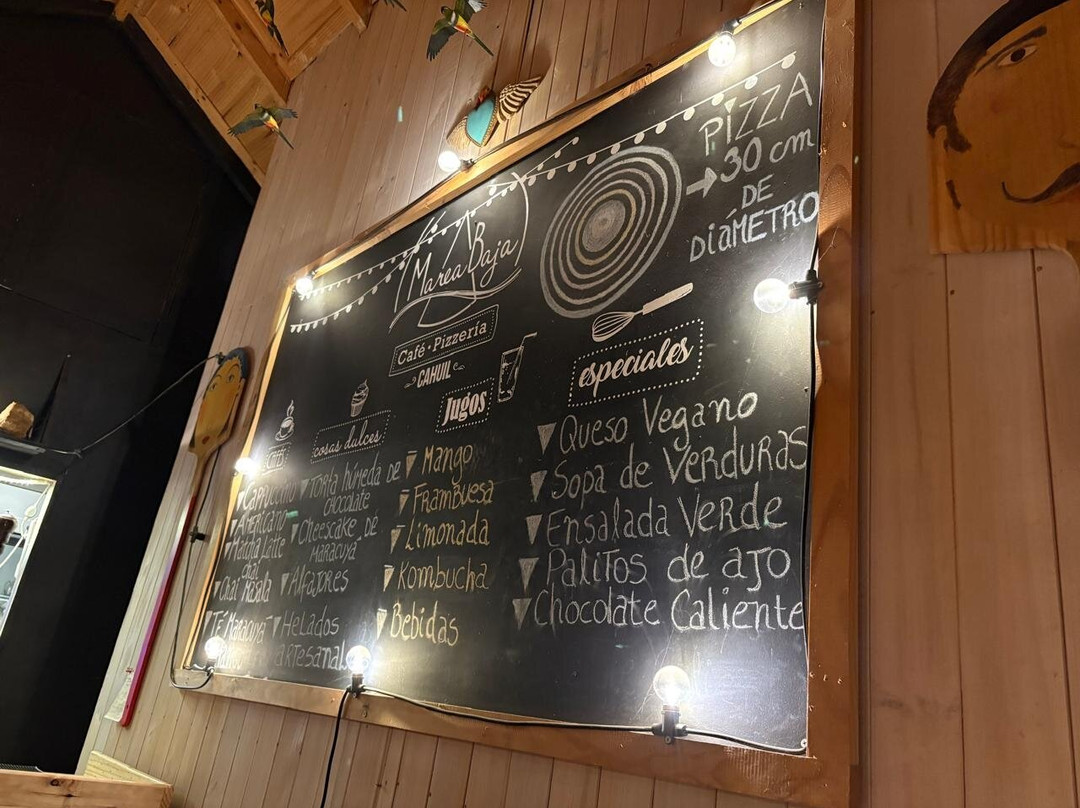 Marea Baja
Café • Pizzería
CAHUIL
PIZZA
30 cm
DE
DiáMETRO
Cappuccino
Americano
Matcha Latte
chai
Chai Masala
Té Maracuyá
cosas dulces
Torta húmeda de
chocolate
Cheescake de
maracuyá
Alfajores
Helados
artesanal
Jugos
Mango
Frambuesa
Limonada
Kombucha
Bebidas
especiales
Queso Vegano
Sopa de Verduras
Ensalada Verde
Palitos de ajo
Chocolate Caliente